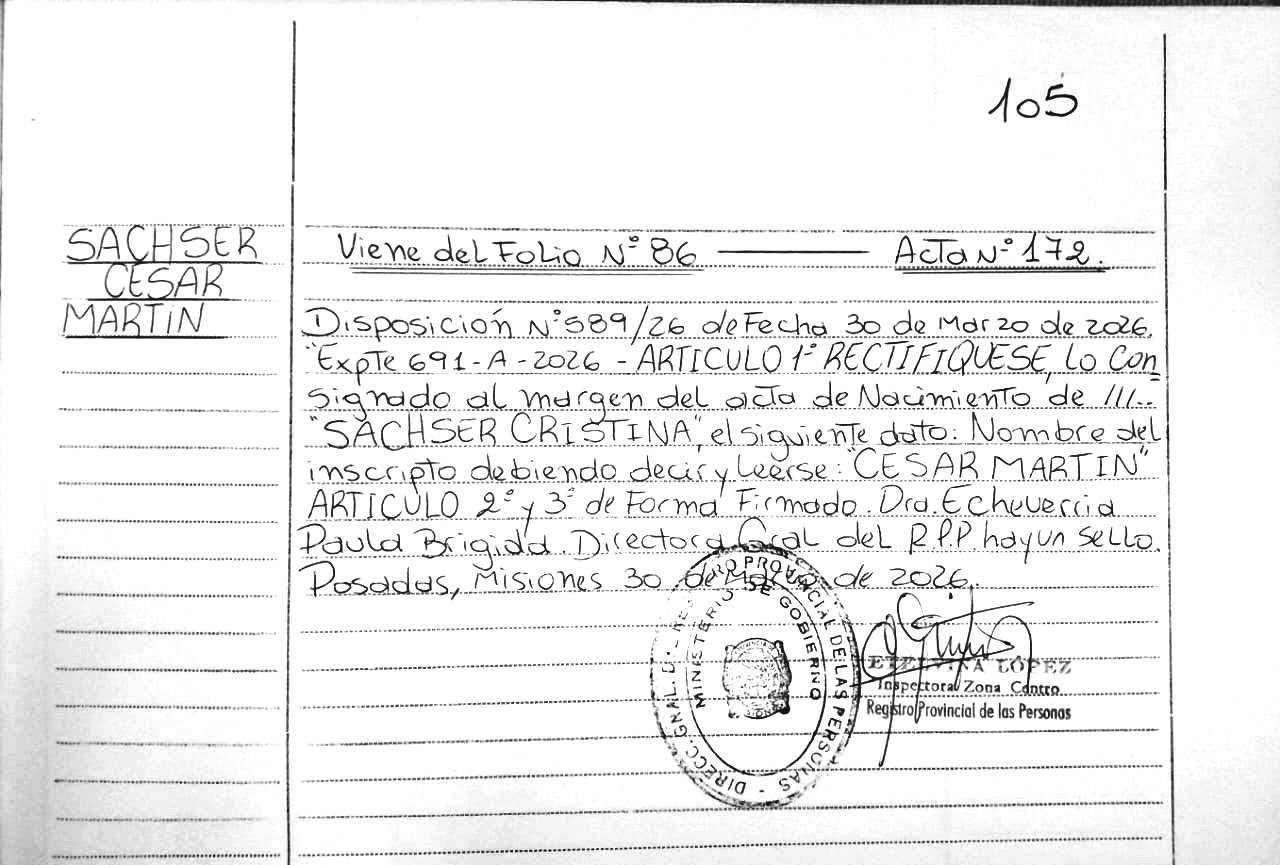 105
SACHSER
CESAR
MARTIN
Viene del Folio N° 86 ——— Acta N° 172.
Disposición N°589/26 de Fecha 30 de Marzo de 2026.
"Expte 691-A-2026 - ARTICULO 1° RECTIFIQUESE, lo Con=
signado al margen del acta de Nacimiento de III..
"SACHSER CRISTINA", el siguiente dato: Nombre del
inscripto debiendo decir y leerse: "CESAR MARTIN"
ARTICULO 2° y 3° de Forma Firmado. Dra. Echeverria
Paula Brigida. Directora Gral del R.P.P. hay un sello.
Posadas, Misiones 30 de Marzo de 2026.
DIRECC. GNAL. DEL REGISTRO PROVINCIAL DE LAS PERSONAS -
MINISTERIO DE GOBIERNO
ETELVINA LOPEZ
Inspectora Zona Centro
Registro Provincial de las Personas